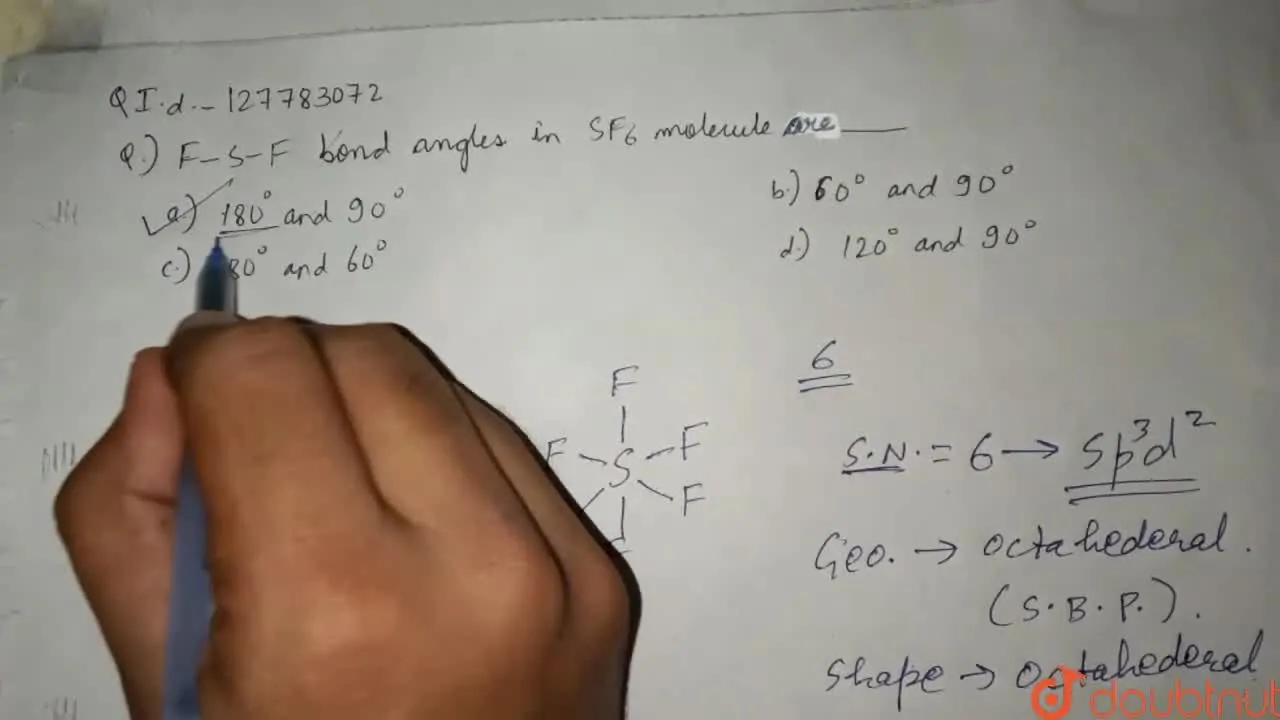 Q I.d.- 127783072
Q.) F-S-F bond angles in SF6 molecule are ____
a.) 180° and 90°
b.) 60° and 90°
c.) 80° and 60°
d.) 120° and 90°
6
F
F S F
F
S.N. = 6 → sp³d²
Geo. → octahederal.
(S.B.P.).
Shape → octahederal
doubtnut